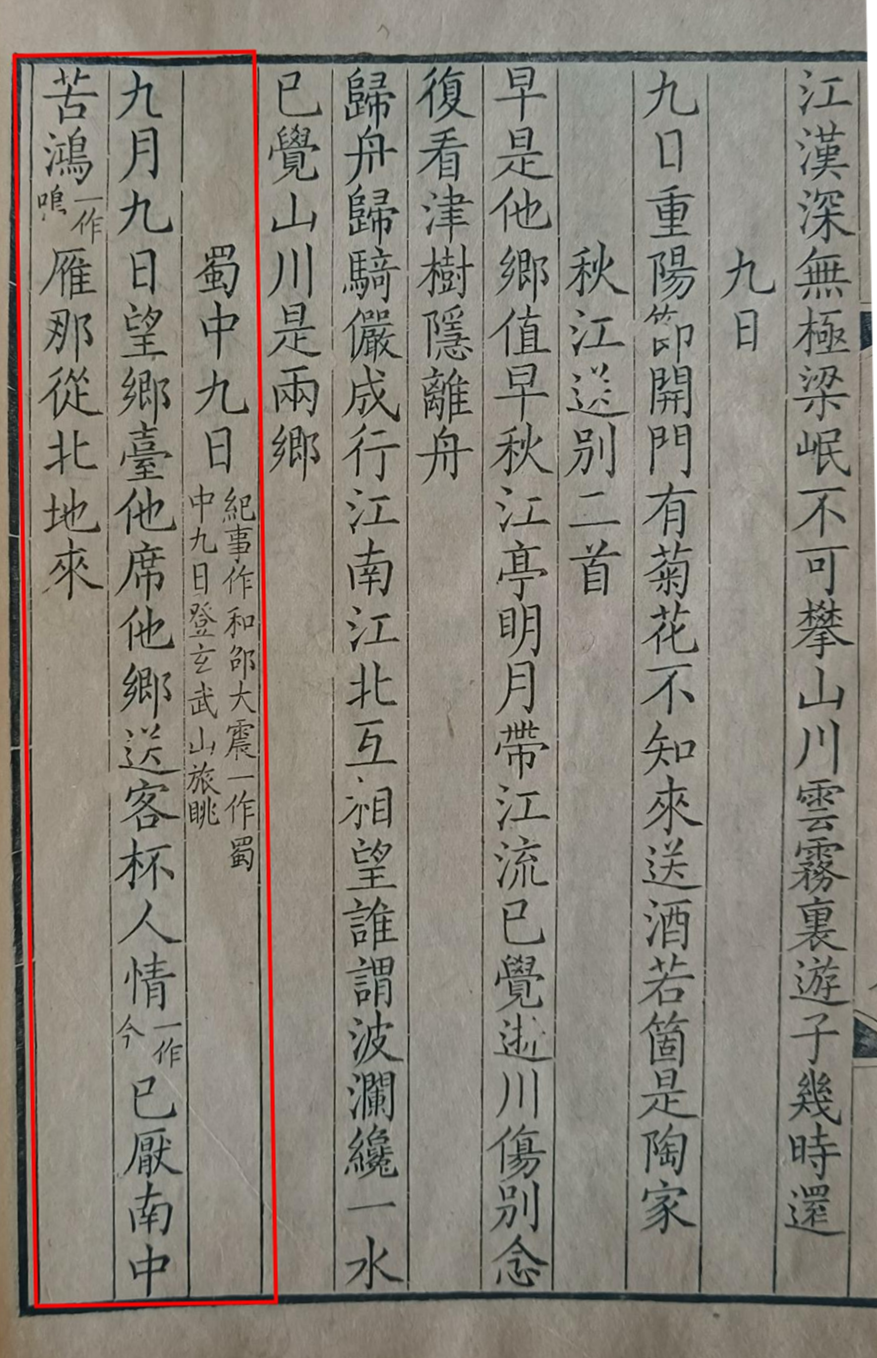 江漢深無極梁岷不可攀山川雲霧裏遊子幾時還
九日
九日重陽節開門有菊花不知來送酒若箇是陶家
秋江送別二首
早是他鄉值早秋江亭明月帶江流已覺逝川傷別念
復看津樹隱離舟
歸舟歸騎儼成行江南江北互相望誰謂波瀾纔一水
已覺山川是兩鄉
蜀中九日紀事作和邵大震一作蜀中九日登玄武山旅眺
九月九日望鄉臺他席他鄉送客杯人情一作今已厭南中
苦鴻一作鳴雁那從北地來